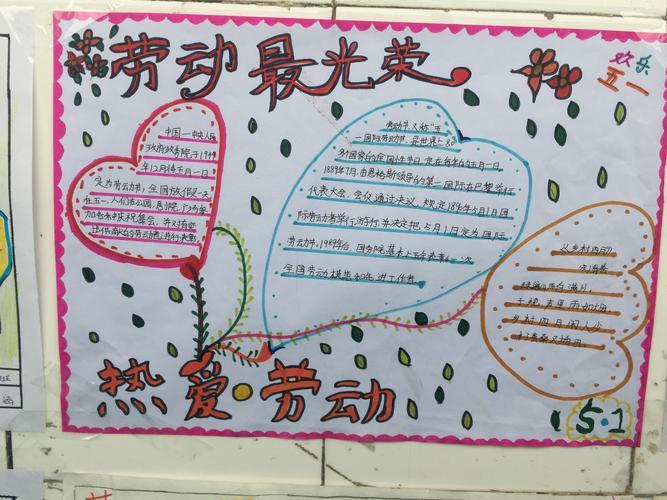 劳动最光荣
欢乐
五一
中国一中央人民
政府政务院于1949
年12月将五月一日
定为劳动节,全国放假一天
在五一,人们在公园,剧院,广场参
加各种庆祝集会,并对有突
出贡献的劳动者进行表彰
劳动节又称"五
一国际劳动节,是世界上80
多个国家的全国性节日,定在每年的五月一日
1889年7月,由恩格斯领导的第一国际在巴黎举行
代表大会,会议通过决议,规定1890年5月1日国
际劳动者举行游行,并决定把5月1日定为国际
劳动节。1989年后,国务院基本上五年表彰一次
全国劳动模范和先进工作者。
乡村四月
绿遍山原白满川,
子规声里雨如烟,
乡村四月闲人少
才了蚕桑又插田。
热爱劳动
5.1